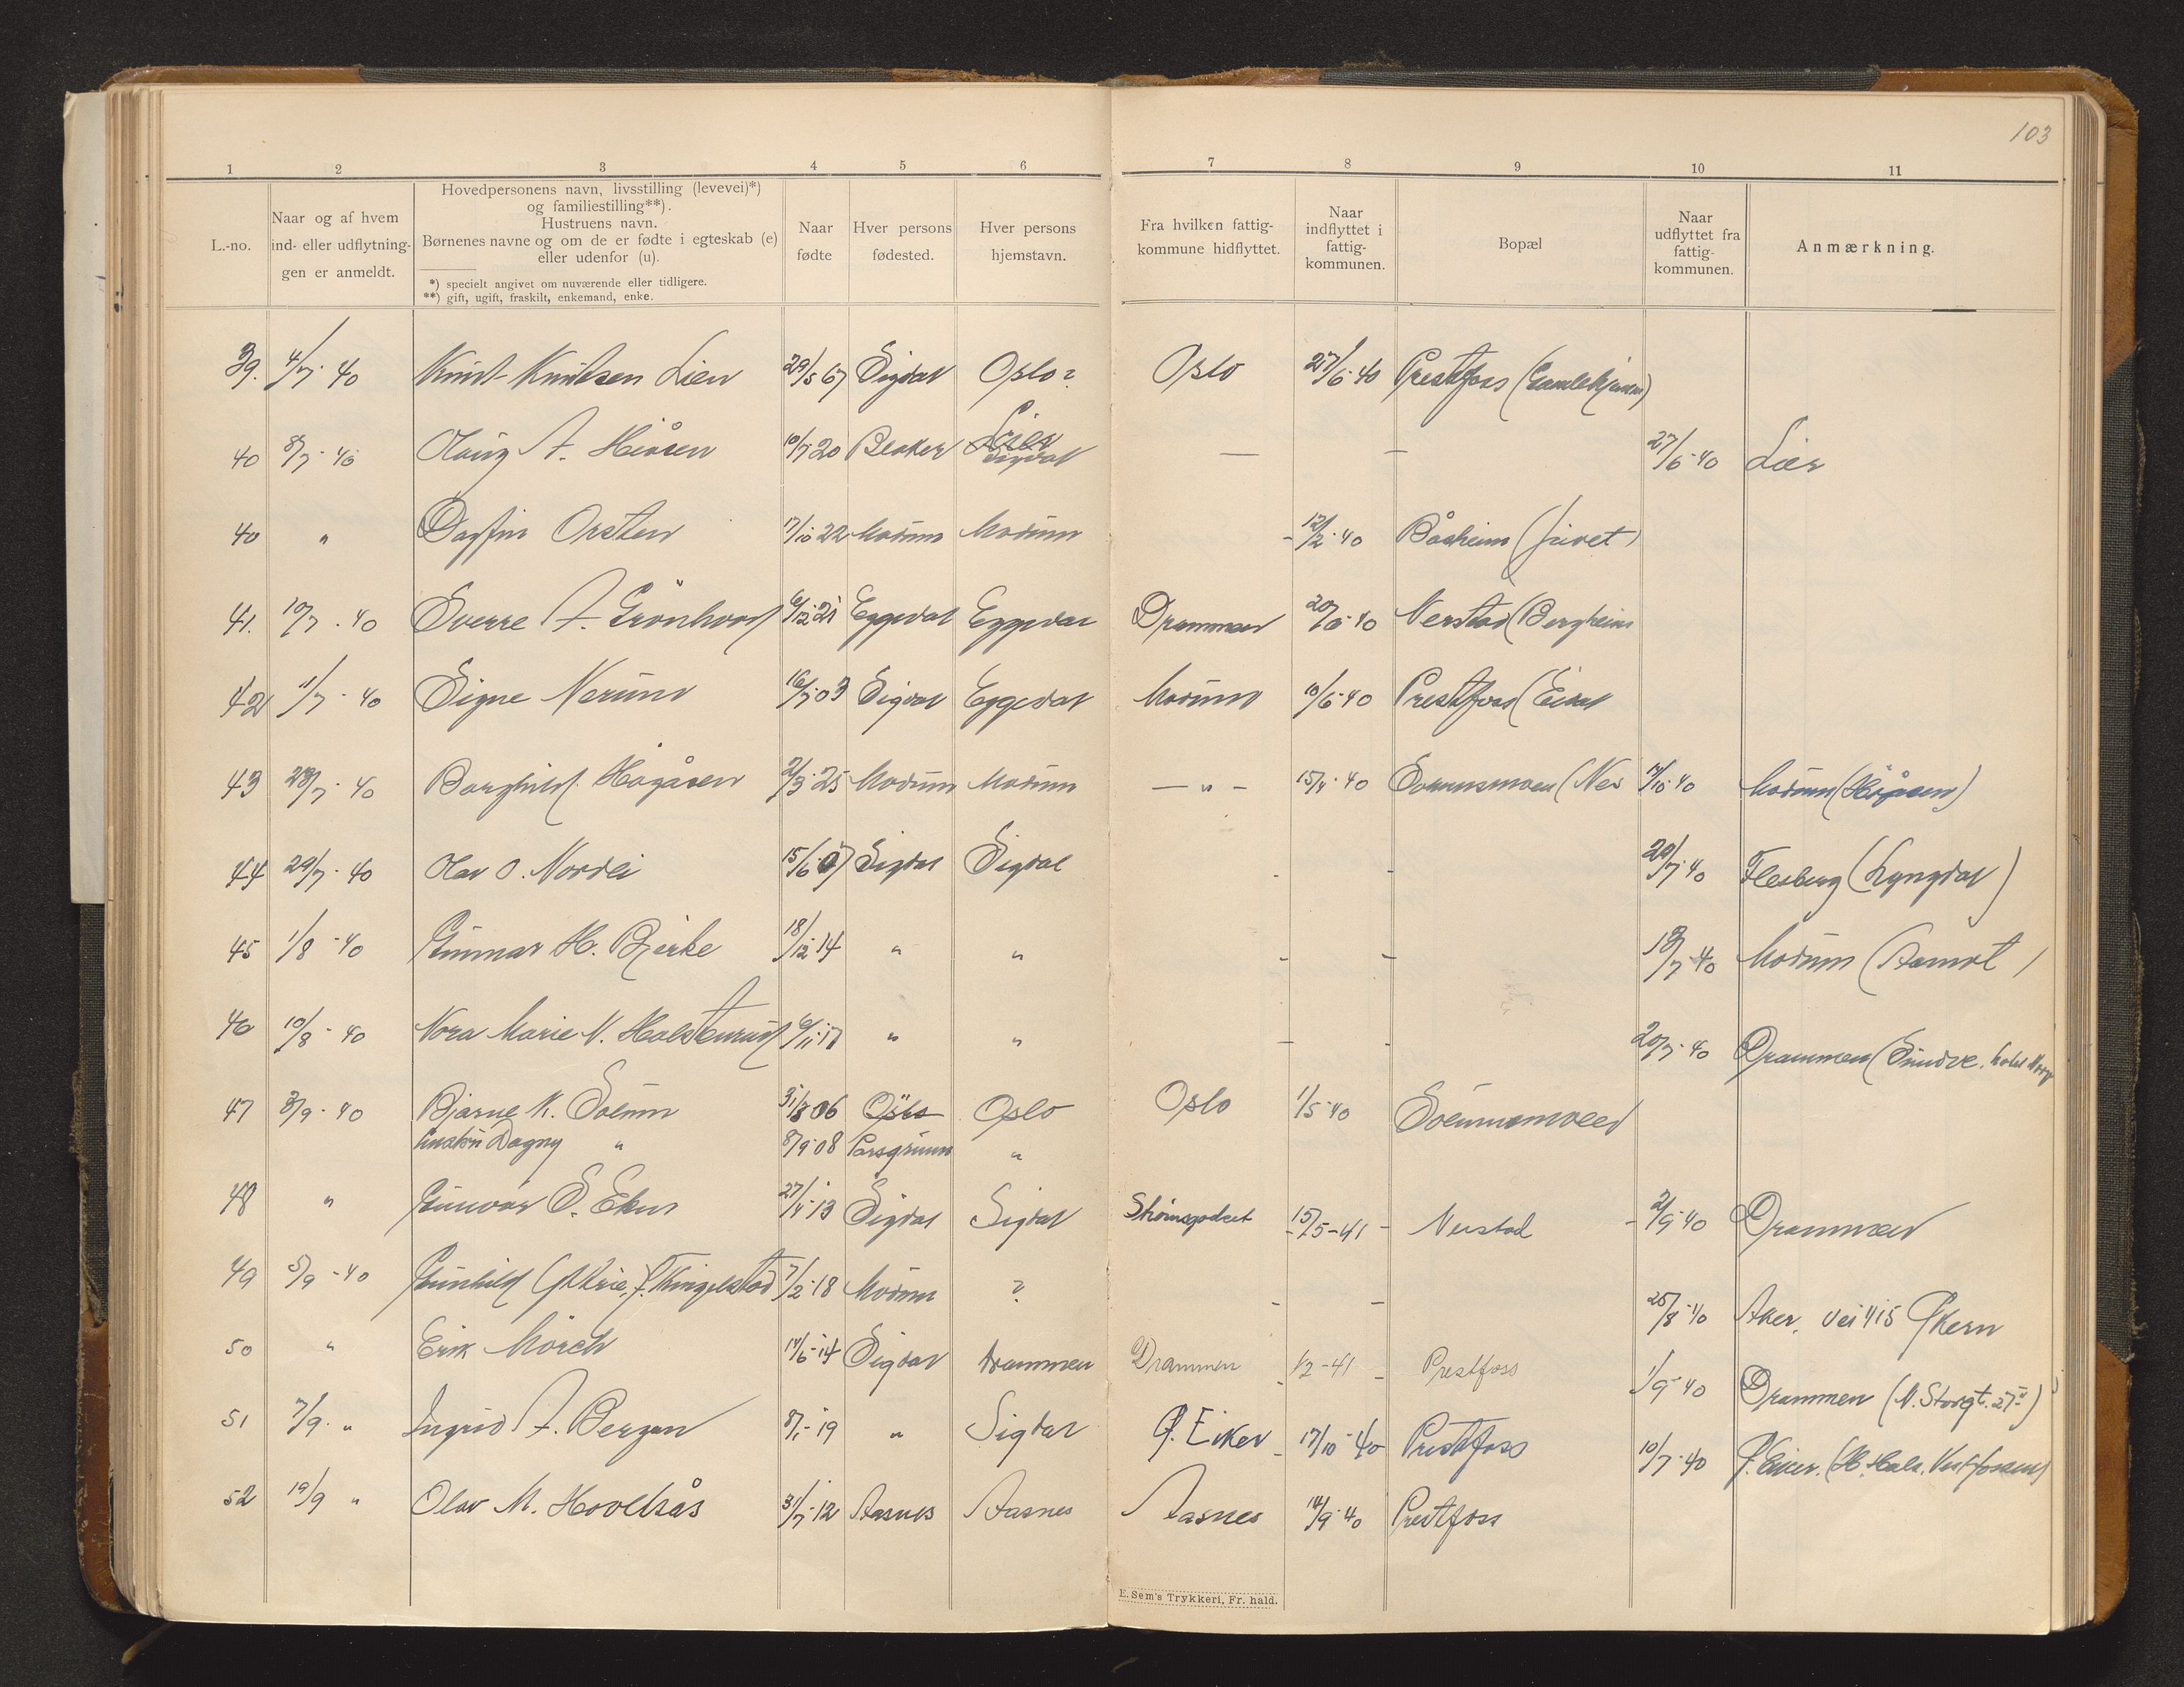 103
1 2 3 4 5 6 7 8 9 10 11
L.-no.
Naar og af hvem
ind- eller udflytning-
gen er anmeldt.
Hovedpersonens navn, livsstilling (levevei)*)
og familiestilling**).
Hustruens navn.
Børnenes navne og om de er fødte i egteskab (e)
eller udenfor (u).
*) specielt angivet om nuværende eller tidligere.
**) gift, ugift, fraskilt, enkemand, enke.
Naar
fødte
Hver persons
fødested.
Hver persons
hjemstavn.
Fra hvilken fattig-
kommune hidflyttet.
Naar
indflyttet i
fattig-
kommunen.
Bopæl
Naar
udflyttet fra
fattig-
kommunen.
Anmærkning.
39. 4/7 - 40 Knut Knutsen Lien 29/5 67 Sigdal Oslo? Oslo 27/6-40 Prestfoss
40 8/7 - 40 A. Heiåsen 10/7 20 Sigdal — — 27/6-40 Lier
40 " Dagfin Orsten 7/10 22 Modum Modum - 12/2-40 Båsheim
41. 10/7 - 40 Sverre A. Grönhovd 6/12-21 Eggedal Eggedal Drammen Nerstad (Bergheim
42 11/7 - 40 Signe Nerum 16/7-03 Sigdal Eggedal Modum 10/6-40 Prestfoss
43 - 40 Borghild Hågåsen 2/3-25 Modum Modum — " - 15/4-40 Solumsmoen (Nes Modum (Hågåsen)
44 29/7 - 40 Olav O. Nordli 15/6 07 Sigdal Sigdal - - 20/7-40 Flesberg (Lyngdal)
45 1/8 - 40 Gunnar H. Bjerke 18/12-14 " " - - 18/7-40 Modum (Aamot)
46 10/8 - 40 Nora Marie N. Halstenrud " " - - 20/7-40 Drammen
47 3/9 - 40 Bjarne K. Solum 31/8 06 Oslo Oslo Oslo 1/5-40 Solumsmoen
Dagny " 8/9-08 Porsgrunn "
48 " Gunvor S. Ekern 27/4-13 Sigdal Sigdal Strömsgodset - 15/5-41 - Nerstad - 2/9-40 Drammen
49 5/9 - 40 Gunhild 7/2-18 Modum ? - - 25/8-40 Aker, Vei
50 " Erik Mörch 14/6-14 Sigdal Drammen Drammen - 1/2-41 - Prestfoss 1/9-40 Drammen (N. Storgt. 27)
51 7/9 - " Ingrid A. Bergan 8/1-19 " Sigdal Ø. Eiker - 17/10-40 Prestfoss 10/7-40 Ø. Eiker.
52 19/9 " Olav M. Hovelsås 31/7-12 Aasnes Aasnes Aasnes 14/9-40 Prestfoss
E. Sem's Trykkeri, Fr. hald.